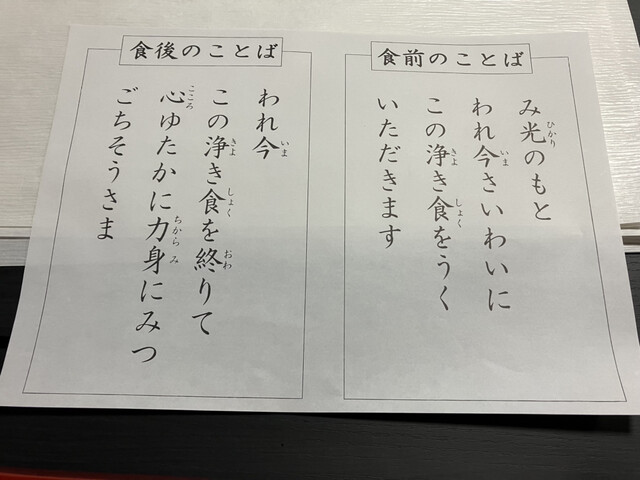 食前のことば
み光のもと
われ今さいわいに
この浄き食をうく
いただきます
食後のことば
われ今
この浄き食を終りて
心ゆたかに力身にみつ
ごちそうさま